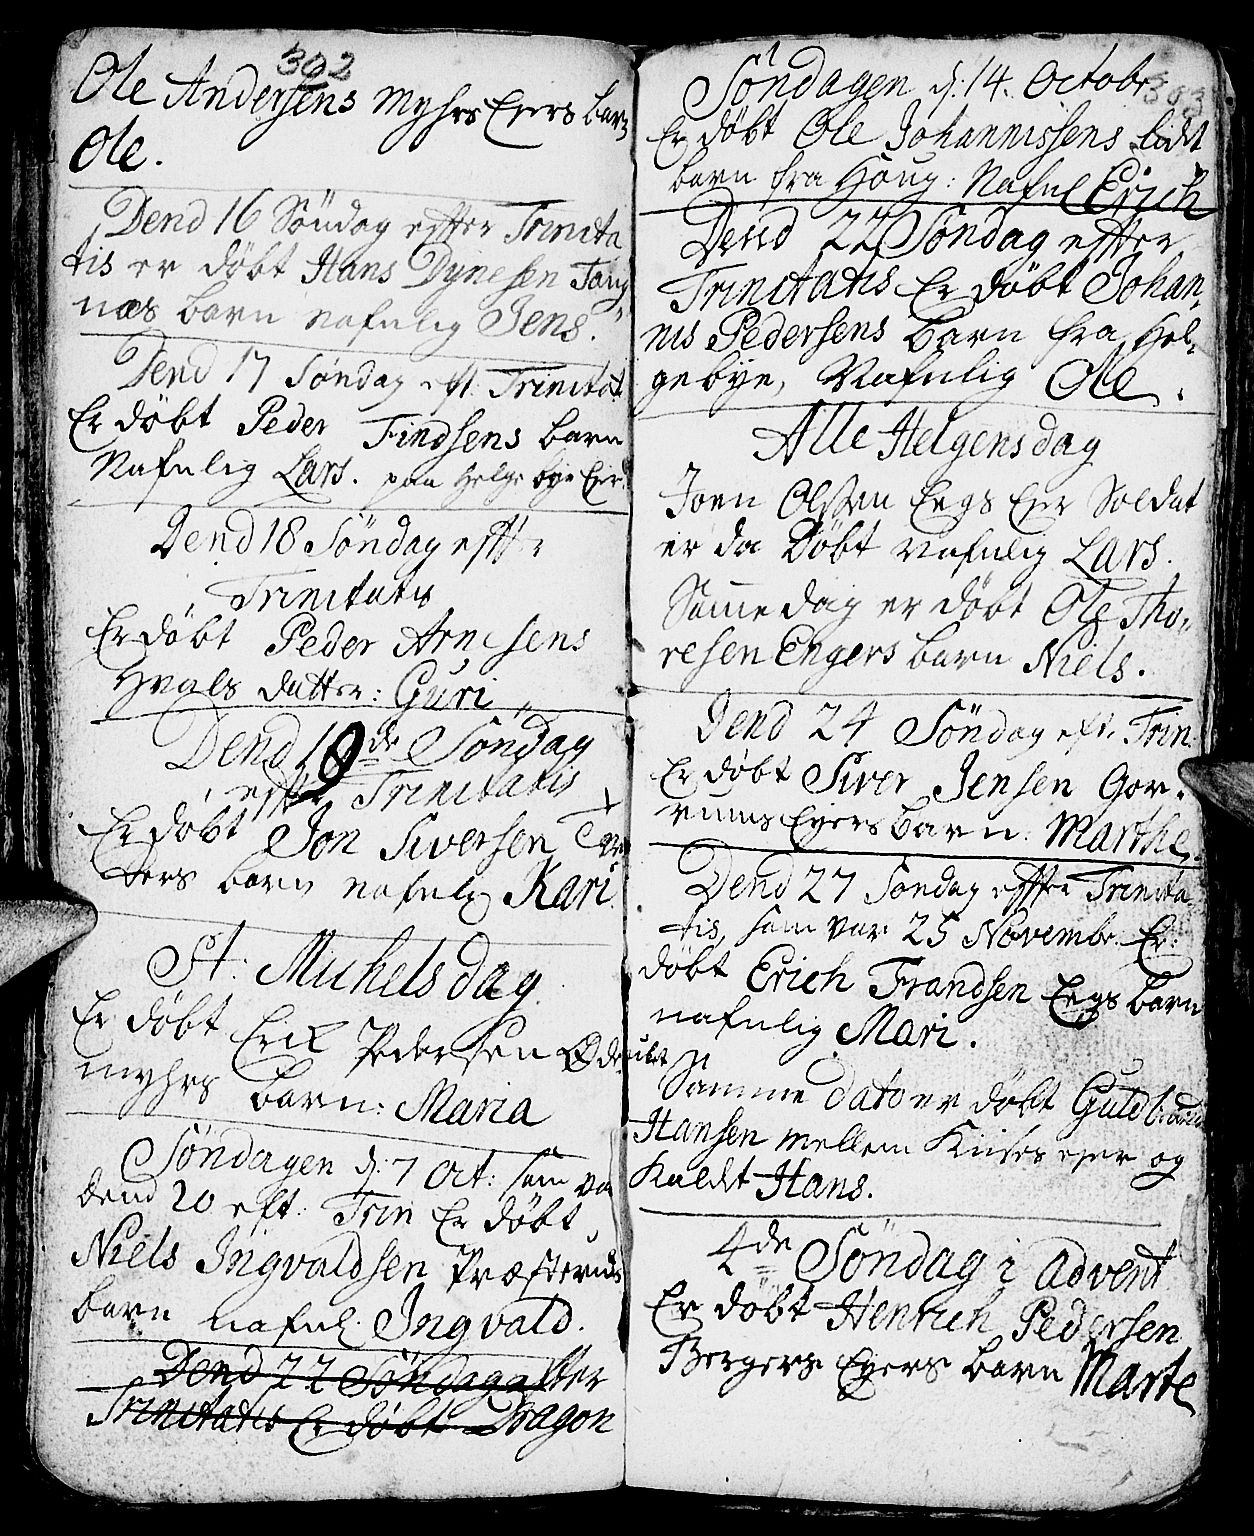 302
Ole Andersens Myhrs Eiers barn
Ole.
Dend 16 Söndag effter Trinita
tis er döbt Hans Dynesen Tang
næs barn nafnlig Jens.
Dend 17 Söndag eft: Trinitat
Er döbt Peder Findsens barn
Nafnlig Lars. paa Helgebye Eier
Dend 18 Söndag effter
Trinitatis
Er döbt Peder Arnesens
Hvals datter: Guri
Dend 19de Söndag
effter Trinitatis
Er döbt Jon Siversen
barn nafnlig Kari.
St: Michels dag
Er döbt Erik Pedersen Öde
myhrs barn: Maria
Söndagen d: 7 Oct: som var
dend 20 eft: Trin Er döbt
Niels Ingvaldsen Præsteruds
barn nafnl. Ingvald.
Dend 22 Söndag effter
Trinitatis Er döbt Dragon
303
Söndagen d: 14. Octobr
Er döbt Ole Johannissens lidt
barn fra Houg: Nafnl Erich
Dend 22 Söndag effter
Trinitatis Er döbt Johan-
nis Pedersens barn fra Hel-
gebye, Nafnlig Ole.
Alle Helgens dag
Joen Olsen Eegs Eier Soldat
er da Döbt nafnlig Lars.
Samme dag er döbt Ole Tho-
resen Engers barn Niels.
Dend 24 Söndag eft. Trin
Er döbt Siver Jensen Gor-
rums Eyers barn: Marthe,
Dend 27 Söndag effter Trinita-
tis, som var 25 Novembr. Er
döbt Erich Frandsen Eegs barn
nafnlig Mari.
Samme dato er döbt Guldbrand
Hansen mellem Kiises eier og
Kaldet Hans.
4de Söndag i Advent
Er döbt Henrich Pedersen
Bergers Eyers barn Marte